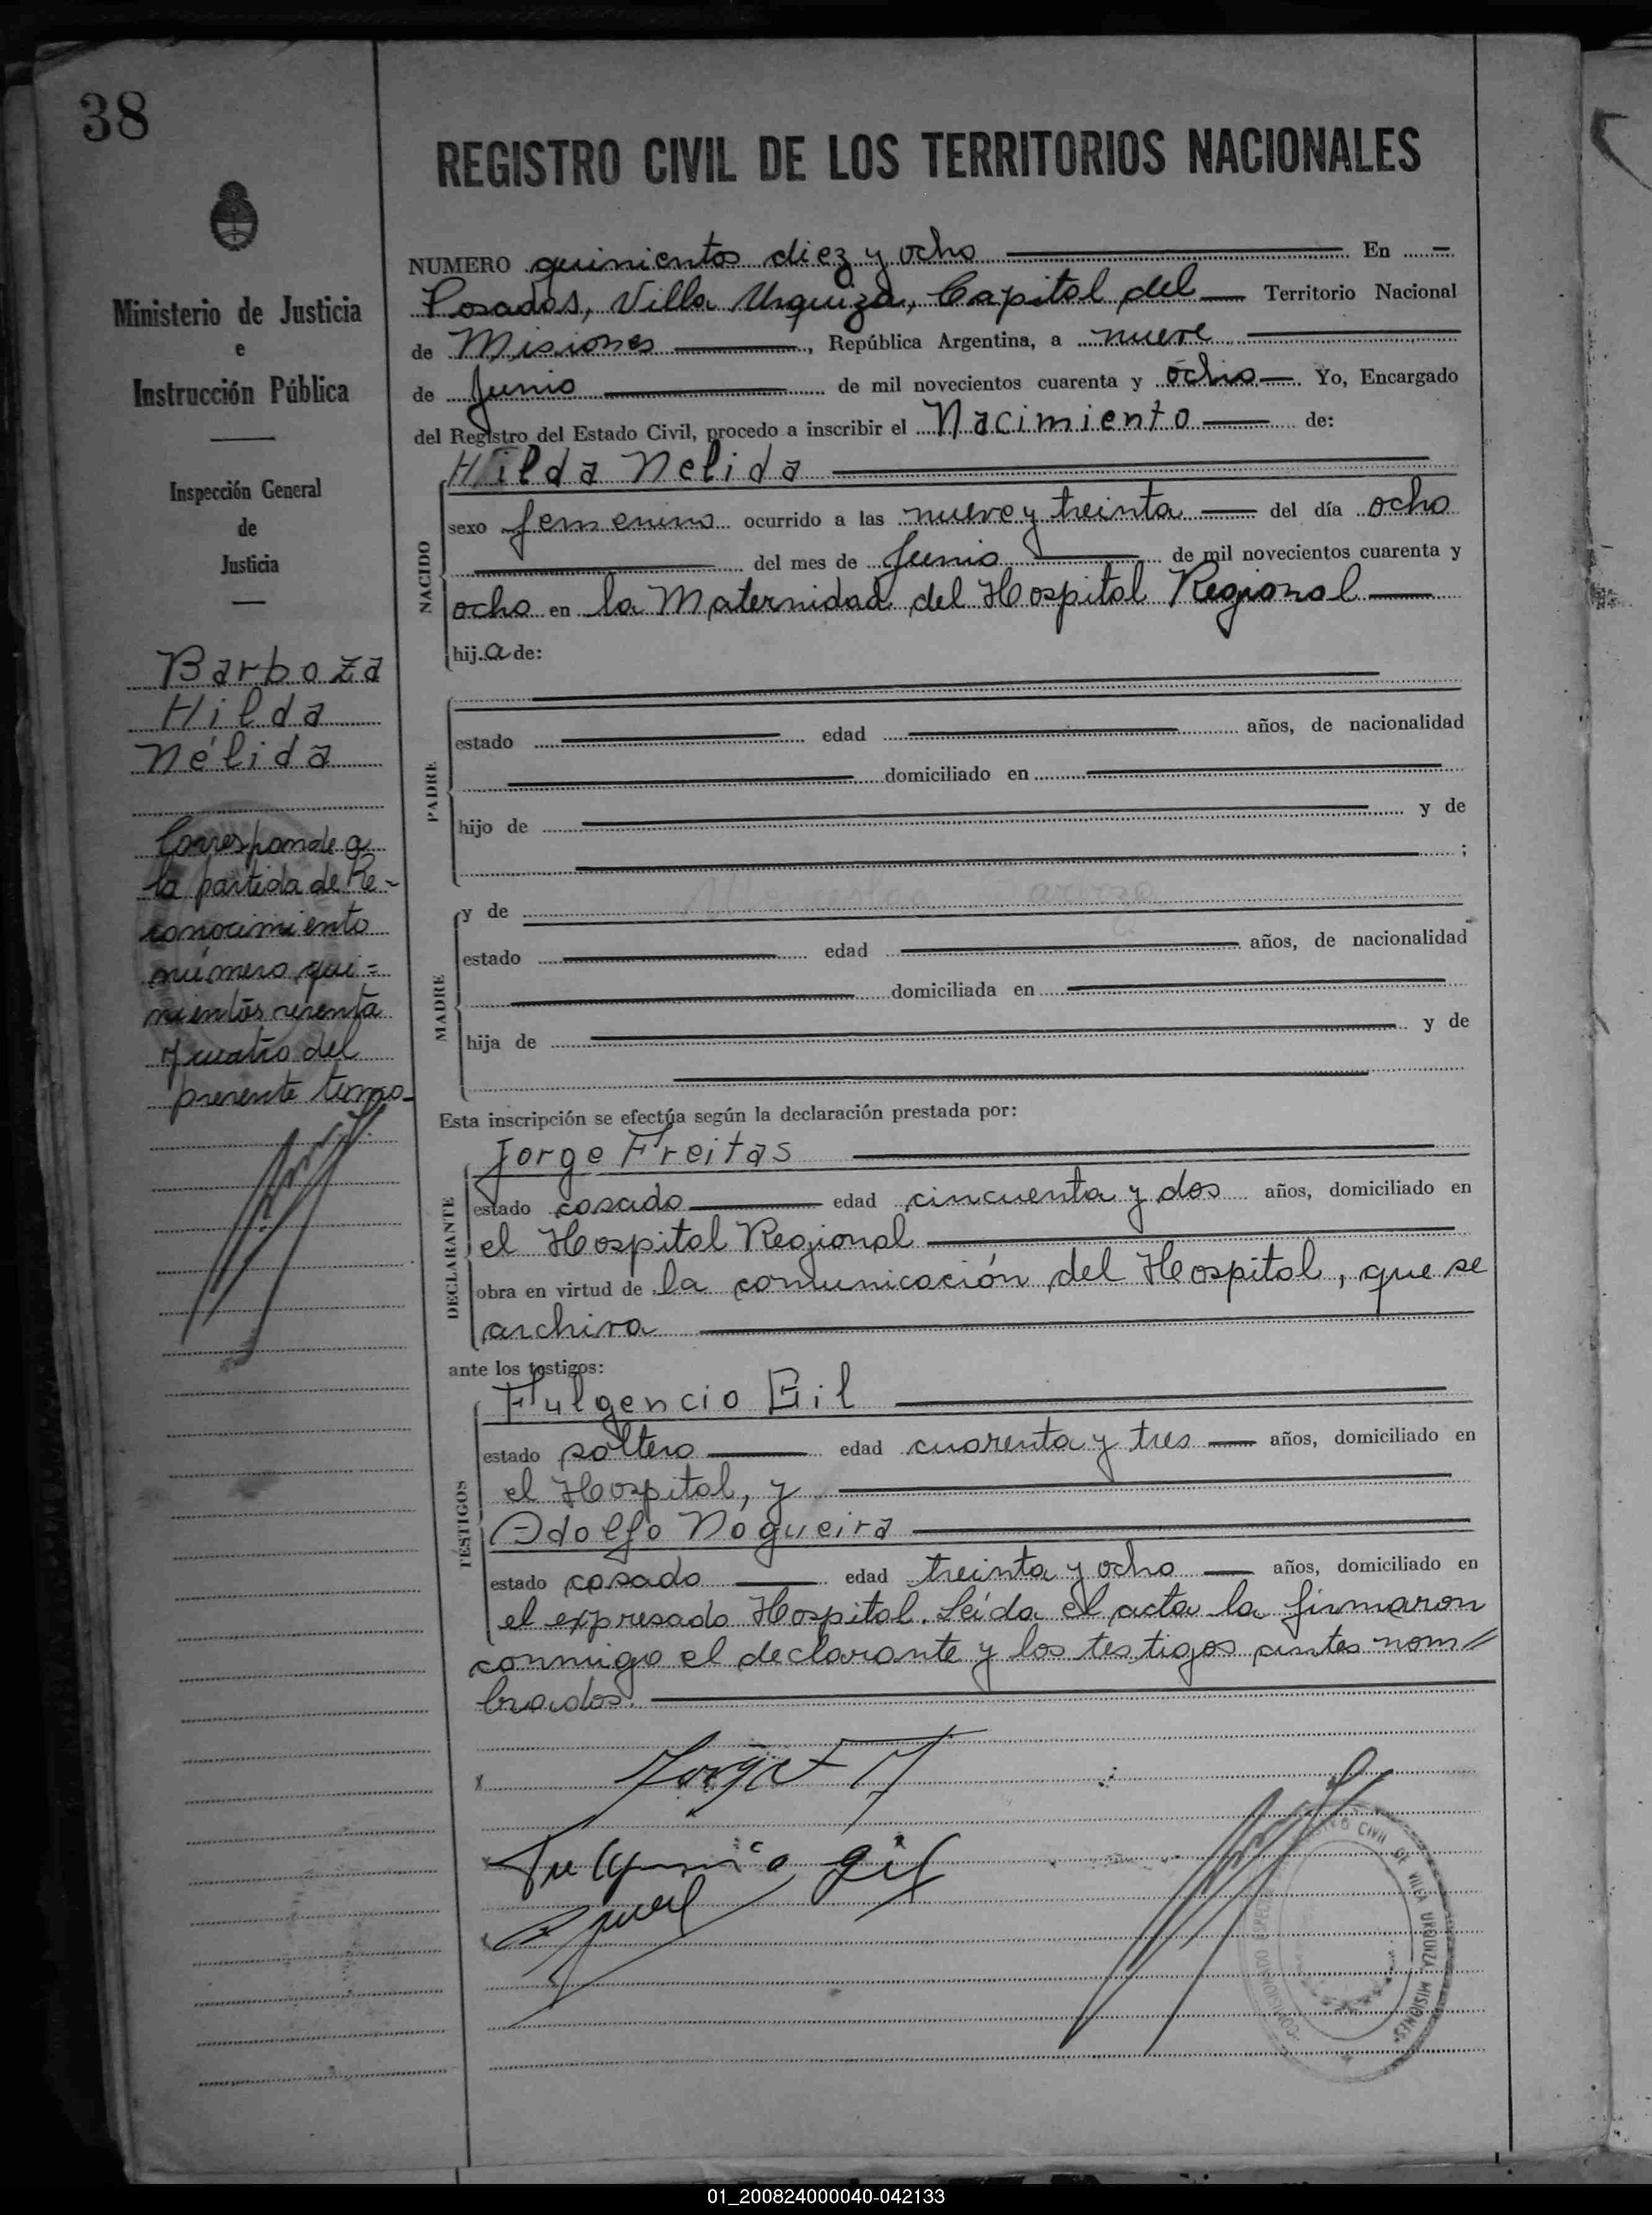 38
REGISTRO CIVIL DE LOS TERRITORIOS NACIONALES
Ministerio de Justicia
e
Instrucción Pública
Inspección General
de
Justicia
Barboza
Hilda
Nélida
Corresponde a
la partida de Re-
conocimiento
número qui=
nientos sesenta
y cuatro del
presente tomo-
NUMERO quinientos diez y ocho En
Posadas, Villa Urquiza, Capital del Territorio Nacional
de Misiones, República Argentina, a nueve
de Junio de mil novecientos cuarenta y ocho Yo, Encargado
del Registro del Estado Civil, procedo a inscribir el Nacimiento de:
Hilda Nelida
NACIDO
sexo femenino ocurrido a las nueve y treinta del día ocho
del mes de Junio de mil novecientos cuarenta y
ocho en la Maternidad del Hospital Regional
hija de:
PADRE
estado edad años, de nacionalidad
domiciliado en
hijo de y de
;
MADRE
y de
estado edad años, de nacionalidad
domiciliada en
hija de y de
Esta inscripción se efectúa según la declaración prestada por:
Jorge Freitas
DECLARANTE
estado casado edad cincuenta y dos años, domiciliado en
el Hospital Regional
obra en virtud de la comunicación del Hospital, que se
archiva
ante los testigos:
Fulgencio Gil
TESTIGOS
estado soltero edad cuarenta y tres años, domiciliado en
el Hospital, y
Adolfo Nogueira
estado casado edad treinta y ocho años, domiciliado en
el expresado Hospital. Leída el acta la firmaron
conmigo el declarante y los testigos antes nom//
brados.
Jorge F
Fulgencio Gil
CIVIL DE VILLA URQUIZA MISIONES.
01_200824000040-042133